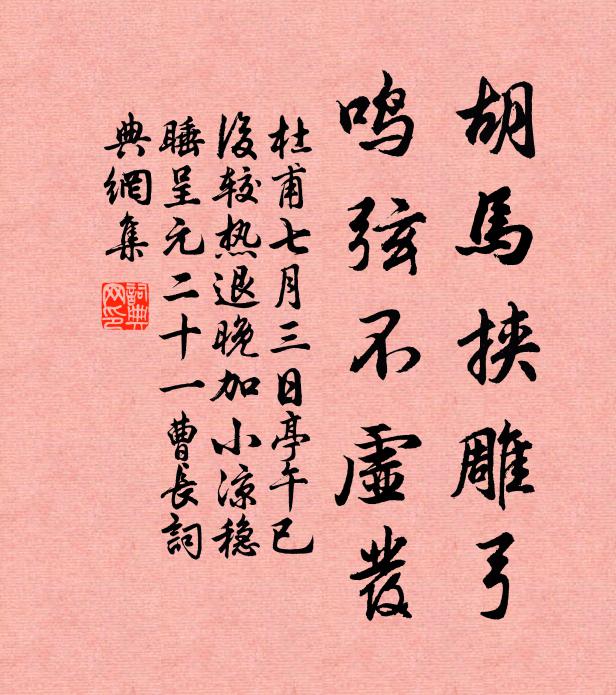 胡马挟雕弓
鸣弦不虚发
杜甫七月三日亭午已
后较热退晚加小凉稳
睡呈元二十一曹长词
典網集
詞典
网印